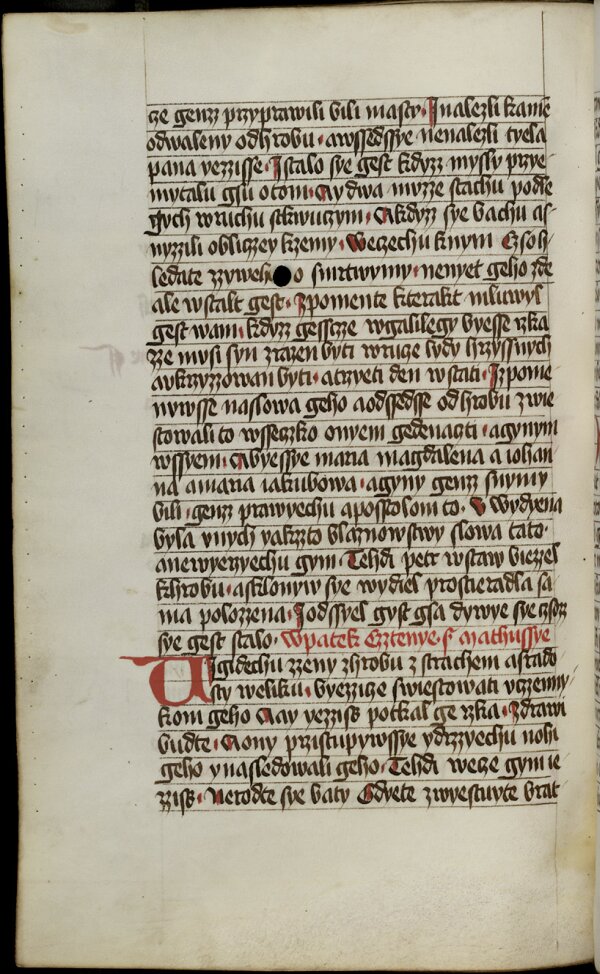 cze genz przyprawili bili masty · Inalezli kame
odwaleny odhrobu · awssedssye nenalezli tyela
pana yezzisse · Istalo sye gest kdyzz mysly przye
mytalu gsu otom · Ay dwa muzze stachu podle
gych wruchu stkwuczym · Akdyzz sye bachu as
nyzzili obliczey kzemy · Weczechu knym Czsoh
ledate zzyweho o smrtwymy · nenyet geho zde
ale wstalt gest · Zpomente kterakt mluwyl
gest wam · kdyzz gesscze wgalilegy byesse rzka
zze musi syn zrazen byti wrucze lydy hrzyssnych
aukrzyzzowan byti · atrzeti den wstati · Izpome
nywsse nasslowa geho aodssedsse odhrobu zwie
stowali to wsseczko onyem gedenaczti · agynym
wssyem · Abyessye maria magdalena a iohan
na amaria iakubowa · agyny genz snymy
bili · genz prawyechu aposstolom to · V wydyena
byla vnych yakzto blaznowstwy slowa tato ·
anewyerzyechu gym · Tehdi petr wstaw biezzel
khrobu · asklonyw sye wydiel prostieradla sa
ma polozzena · Iodssyel gyst gsa dywye sye czsoz
sye gest stalo · Wpatek Cztenye · s mathussye
Uigidechu zzeny zhrobu z strachem arado
sty weliku · byezziecze swiestowati vczenny
kom geho Aay yezziss potkal ge rzka · Zdrawi
budte · Aony przistupywssye ydrzzyechu nohi
geho ynassledowali geho · Tehdi wecze gym ie
zziss · Nerodte sye baty Gdyete zwyestuyte brat